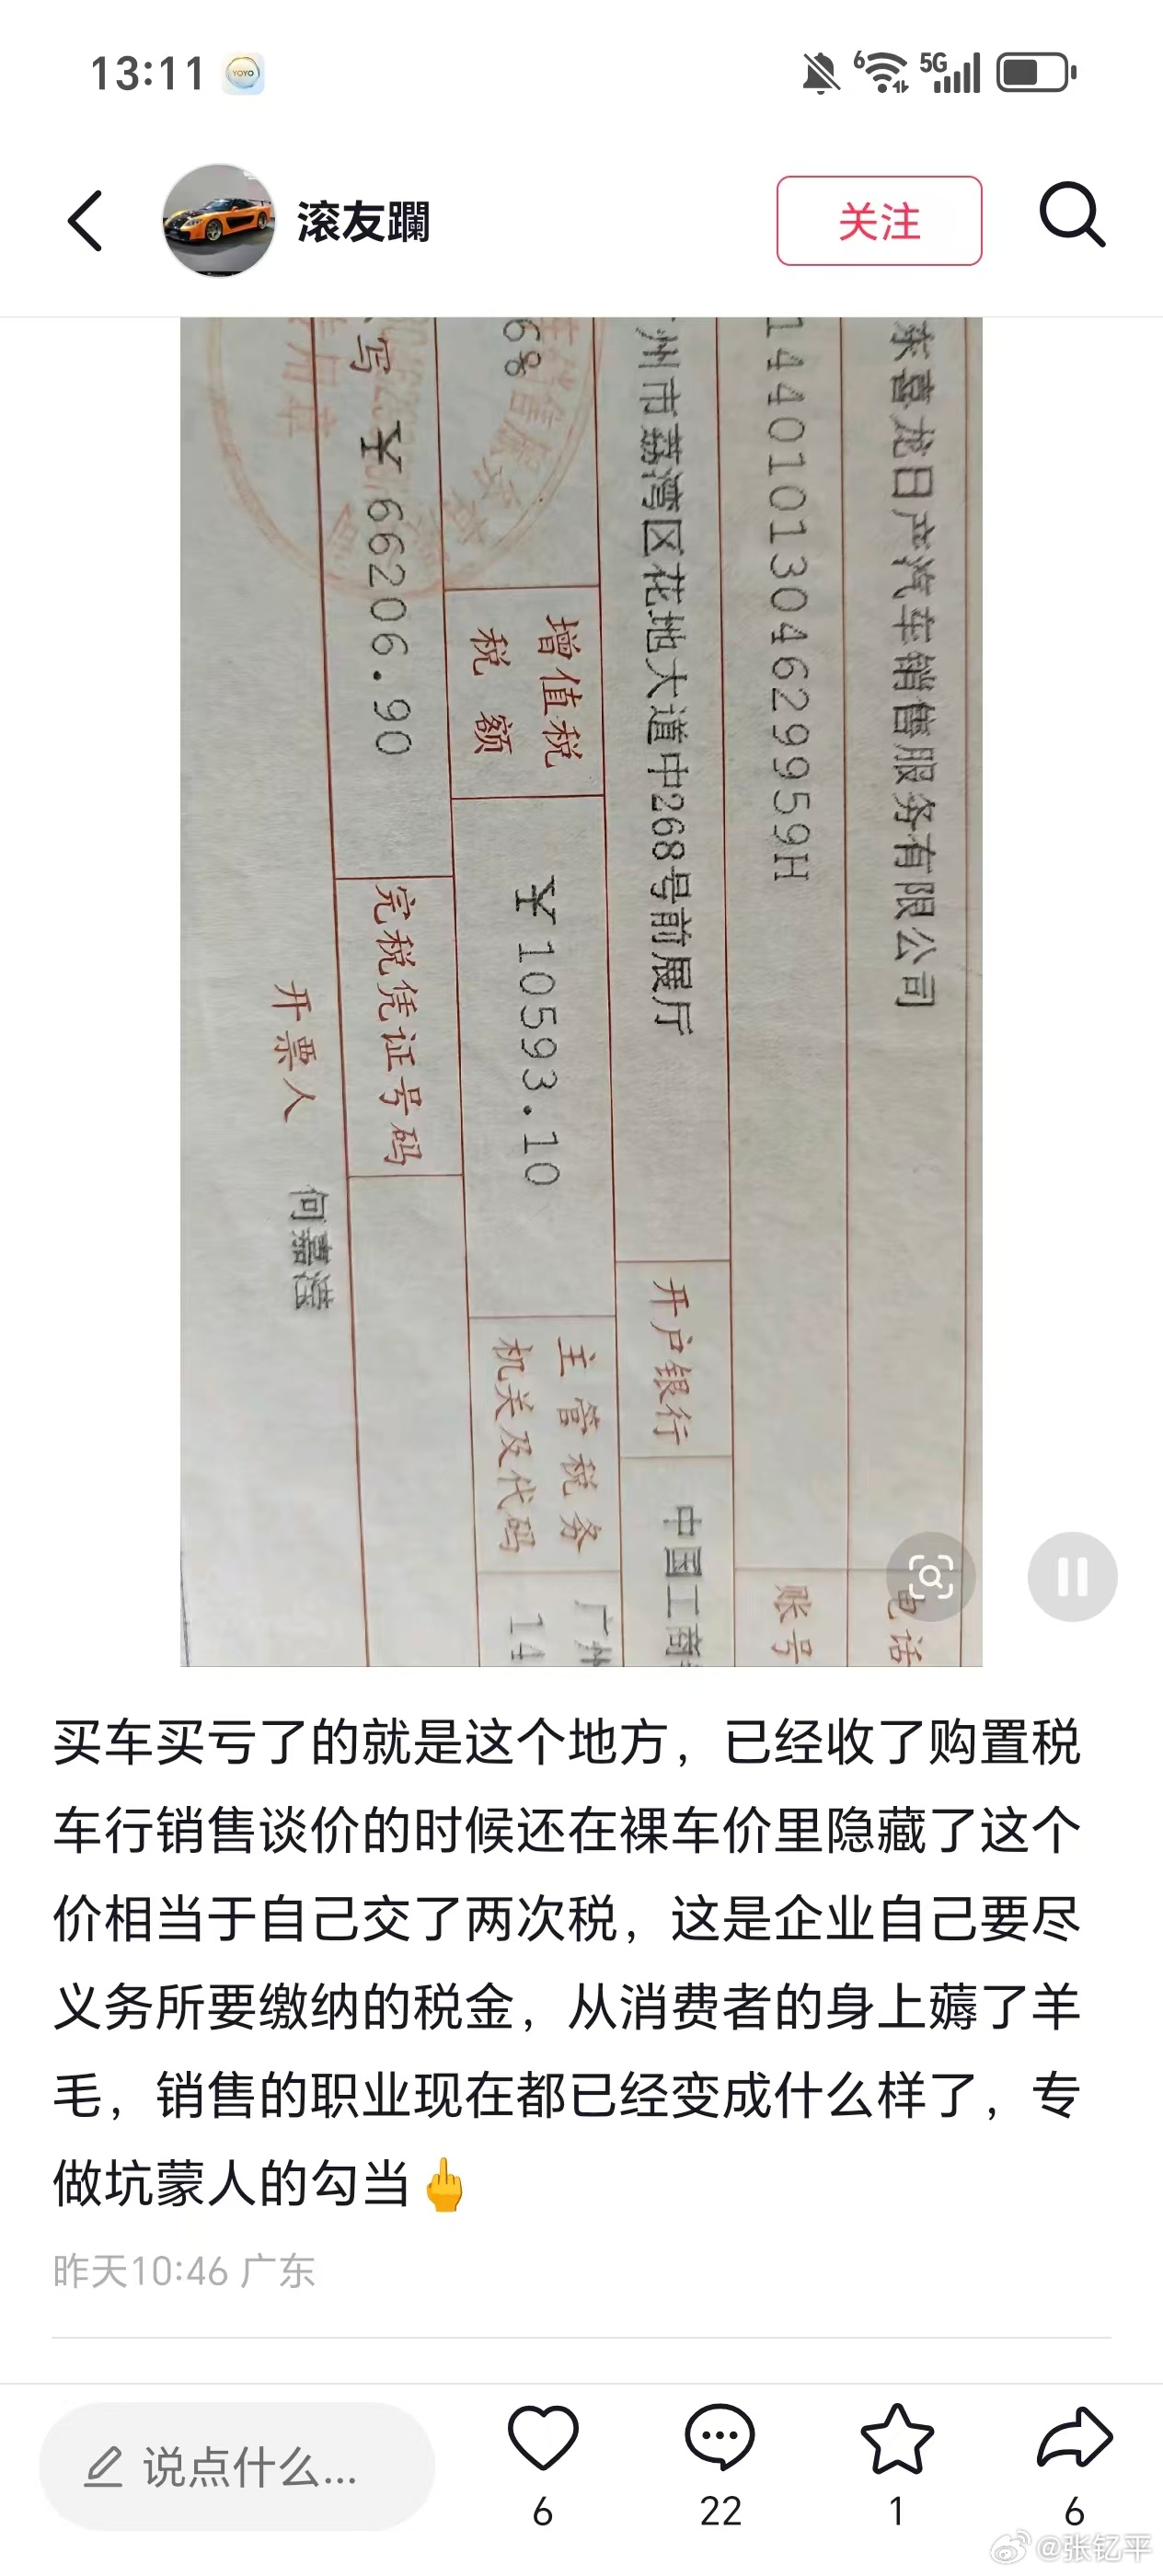 13:11
YOYO
6
5G
滚友躝
关注
东喜龙日产汽车销售服务有限公司
电话
1440101304629959H
账号
州市荔湾区花地大道中268号前展厅
开户银行
中国工商
68
增值税
税额
￥10593.10
主管税务
机关及代码
广州
14
写
￥66206.90
完税凭证号码
开票人
买车买亏了的就是这个地方，已经收了购置税
车行销售谈价的时候还在裸车价里隐藏了这个
价相当于自己交了两次税，这是企业自己要尽
义务所要缴纳的税金，从消费者的身上薅了羊
毛，销售的职业现在都已经变成什么样了，专
做坑蒙人的勾当🖕
昨天10:46 广东
说点什么...
6
22
1
6
@张钇平